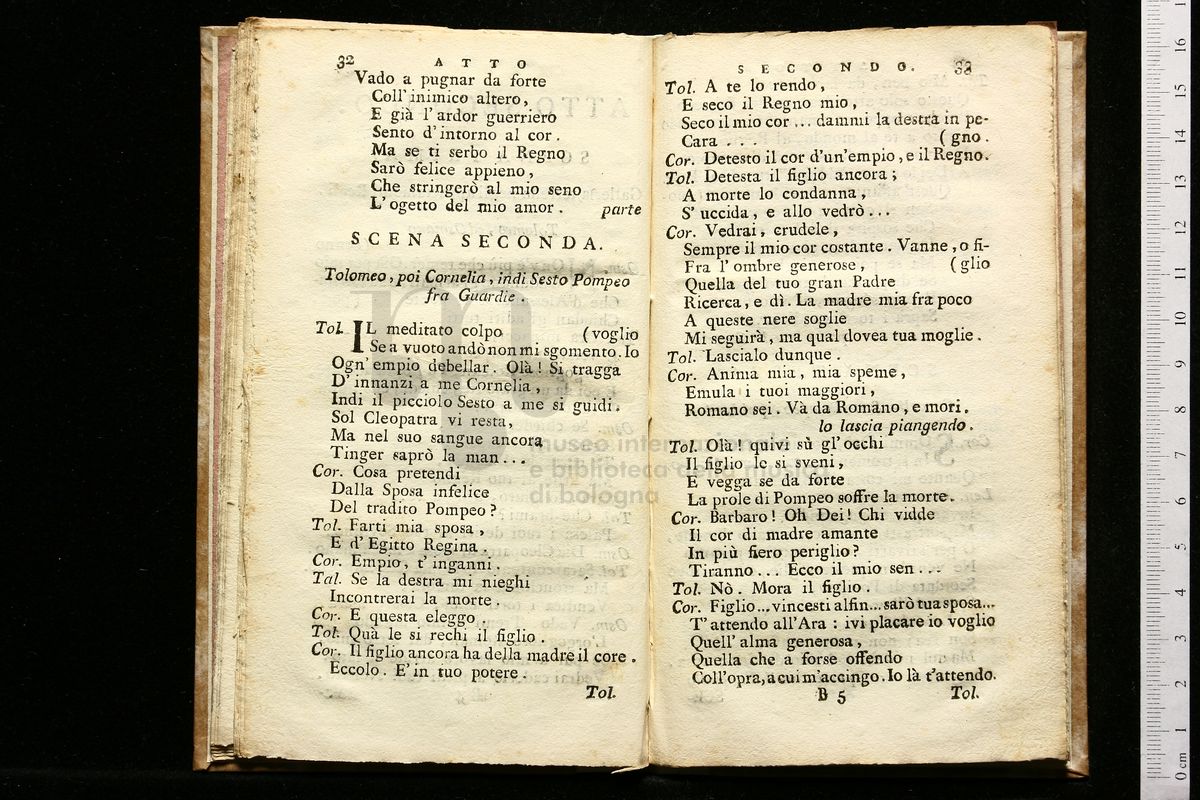 32
ATTO
Vado a pugnar da forte
Coll' inimico altero,
E già l'ardor guerriero
Sento d'intorno al cor.
Ma se ti serbo il Regno
Sarò felice appieno,
Che stringerò al mio seno
L'ogetto del mio amor. parte
SCENA SECONDA.
Tolomeo, poi Cornelia, indi Sesto Pompeo
fra Guardie.
Tol. IL meditato colpo (voglio
Se a vuoto andò non mi sgomento. Io
Ogn' empio debellar. Olà! Si tragga
D' innanzi a me Cornelia,
Indi il picciolo Sesto a me si guidi.
Sol Cleopatra vi resta,
Ma nel suo sangue ancora
Tinger saprò la man...
Cor. Cosa pretendi
Dalla Sposa infelice
Del tradito Pompeo?
Tol. Farti mia sposa,
E d'Egitto Regina.
Cor. Empio, t' inganni.
Tal. Se la destra mi nieghi
Incontrerai la morte.
Cor. E questa eleggo.
Tol. Quà le si rechi il figlio.
Cor. Il figlio ancora ha della madre il core.
Eccolo. E' in tuo potere.
Tol.
SECONDO. 33
Tol. A te lo rendo,
E seco il Regno mio,
Seco il mio cor... dammi la destra in pe-
Cara ... (gno.
Cor. Detesto il cor d'un'empio, e il Regno.
Tol. Detesta il figlio ancora;
A morte lo condanna,
S' uccida, e allo vedrò...
Cor. Vedrai, crudele,
Sempre il mio cor costante. Vanne, o fi-
Fra l'ombre generose, (glio
Quella del tuo gran Padre
Ricerca, e dì. La madre mia fra poco
A queste nere soglie
Mi seguirà, ma qual dovea tua moglie.
Tol. Lascialo dunque.
Cor. Anima mia, mia speme,
Emula i tuoi maggiori,
Romano sei. Và da Romano, e mori.
lo lascia piangendo.
Tol. Olà! quivi sù gl'occhi
Il figlio le si sveni,
E vegga se da forte
La prole di Pompeo soffre la morte.
Cor. Barbaro! Oh Dei! Chi vidde
Il cor di madre amante
In più fiero periglio?
Tiranno... Ecco il mio sen...
Tol. Nò. Mora il figlio.
Cor. Figlio... vincesti alfin... sarò tua sposa...
T' attendo all'Ara: ivi placare io voglio
Quell' alma generosa,
Quella che a forse offendo
Coll'opra, a cui m'accingo. Io là t'attendo.
B 5 Tol.
museo internazionale
e biblioteca della musica
di bologna
0 cm 1 2 3 4 5 6 7 8 9 10 11 12 13 14 15 16